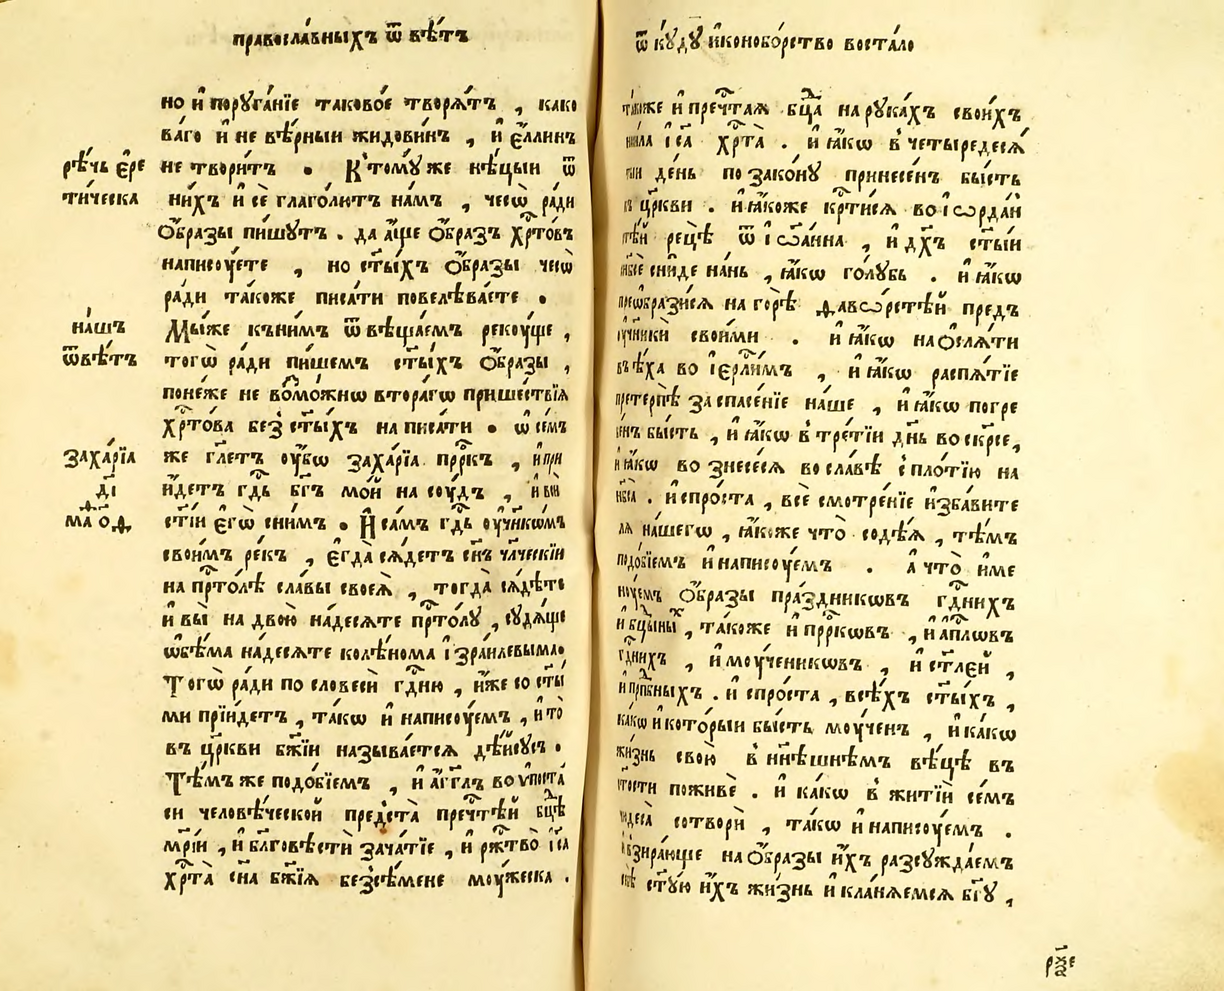 православныхъ ѿвѣтъ
но и҆ порꙋга́нїе таково́е творѧ́тъ , како
ва́го и҆ не вѣ́рныи жидови́нъ , и҆ є҆́ллинъ
рѣ́чь є҆ре
не твори́тъ . К̾томꙋ́же нѣ́цыи ѿ
ти́ческа
ни́хъ и҆ сѐ глаго́лютъ на́мъ , чесѡ̀ ра́ди
ѻ҆́бразы пи́шꙋтъ . да а҆́ще ѻ҆́бразъ хрⷭ҇то́въ
написꙋ́ете , но ст҃ы́хъ ѻ҆́бразы чесѡ̀
ра́ди та́коже писа́ти повелѣва́ете .
на́шъ
Мы́же къни́мъ ѿвѣща́емъ рекꙋ́ще ,
ѿвѣ́тъ
тогѡ̀ ра́ди пи́шемъ ст҃ы́хъ ѻ҆́бразы ,
поне́же не воⷥмо́жнѡ втора́гѡ прише́ствїѧ
хрⷭ҇то́ва без̾ ст҃ы́хъ написа́ти . ѡ҆ се́мъ
заха́рїа
же гл҃етъ ᲂу҆́бѡ заха́рїа прⷪ҇ро́къ , и҆ прї
и҆́детъ гдⷭ҇ь бг҃ъ мо́й на сꙋ́дъ , и҆ всѝ
д҃і
ст҃і́и є҆гѡ̀ сни́мъ . И҆ са́мъ гдⷭ҇ь ᲂу҆чн҃кѡ́мъ
свои́мъ ре́къ , є҆гда̀ сѧ́детъ сн҃ъ чл҃ческїи
на прⷭ҇то́лѣ сла́вы своеѧ̀ , тогда̀ сѧ́дѣте
и҆ вы̀ на двою̀ на́десѧте прⷭ҇то́лꙋ , сꙋдѧ́ще
ѻ҆бѣ́ма на́десѧте колѣ́нома і҆зра́илевыма .
Тогѡ̀ ра́ди по словесѝ гдⷭ҇ню , и҆́же со ст҃ы́
ми прїи́детъ , та́кѡ и҆ написꙋ́емъ , и҆ то̀
въ цр҃кви бж҃їи называ́етсѧ дѣ́исꙋсъ .
Тѣ́мъ же подо́бїемъ , и҆ а҆́гг҃лъ во ѵ҆поста́
си человѣ́ческой предста̀ пречⷭ҇тѣй бцⷣѣ
мр҃і́и , и҆ бл҃говѣстѝ зача́тїе , и҆ рж҇ⷭтво̀ і҆с҃а
хрⷭ҇та̀ сн҃а бж҃їѧ безсѣ́мене мꙋ́жеска .
ѿкꙋ́дꙋ и҆конобо́рство воста́ло
та́коже и҆ пречⷭ҇таѧ бцⷣа на рꙋка́хъ свои́хъ
і҆с҃а хрⷭ҇та̀ . и҆ ꙗ҆́кѡ в̾ четыредесѧ́
де́нь по зако́нꙋ принесе́нъ бы́сть
цр҃кви . и҆ ꙗ҆́коже крⷭ҇ти́сѧ во і҆ѻрда́н
рецѣ̀ ѿ і҆ѻа́нна , и҆ дх҃ъ ст҃ы́й
сни́де на́нь , ꙗ҆́кѡ го́лꙋбь . и҆ ꙗ҆́кѡ
преѡбрази́сѧ на горѣ̀ ѳавѡ́рстѣй предъ
ᲂу҆чн҃ки̑ свои́ми . и҆ ꙗ҆́кѡ на ѻ҆слѧ́ти
въѣ́ха во і҆ерⷭ҇ли́мъ , и҆ ꙗ҆́кѡ распѧ́тїе
претерпѣ̀ за спасе́нїе на́ше , и҆ ꙗ҆́кѡ погре
бе́нъ бы́сть , и҆ ꙗ҆́кѡ в̾ тре́тїи дн҃ь воскр҃се ,
и҆ ꙗ҆́кѡ вознесе́сѧ во сла́вѣ с̾ пло́тїю на
нб҃са . и҆ спро́ста , всѐ смотре́нїе и҆зба́вите
лѧ на́шегѡ , ꙗ҆́коже что̀ содѣ́ѧ , тѣ́мъ
подо́бїемъ и҆ написꙋ́емъ . а҆ что̀ и҆ме
нꙋ́емъ ѻ҆́бразы пра́здникѡвъ гдⷭ҇нихъ
и҆ бцⷣыныхъ , та́коже и҆ прⷪ҇ро́кѡвъ , и҆ а҆пⷭ҇лѡвъ
гдⷭ҇нихъ , и҆ мꙋ́ченикѡвъ , и҆ ст҃лей ,
и҆ прпⷣбныхъ . и҆ спро́ста , всѣ́хъ ст҃ы́хъ ,
ка́кѡ и҆ кото́рыи бы́сть мꙋ́ченъ , и҆ ка́кѡ
жи́знь свою̀ в̾ нн҃ѣшнѣмъ вѣ́цѣ въ
поживѐ . и҆ ка́кѡ в̾ житїѝ се́мъ
чюдеса̀ сотворѝ , та́кѡ и҆ написꙋ́емъ .
взира́юще на ѻ҆́бразы и҆́хъ разсꙋжда́емъ
ст҃ꙋ́ю и҆́хъ жи́знь и҆ кла́нѧемсѧ бг҃ꙋ ,